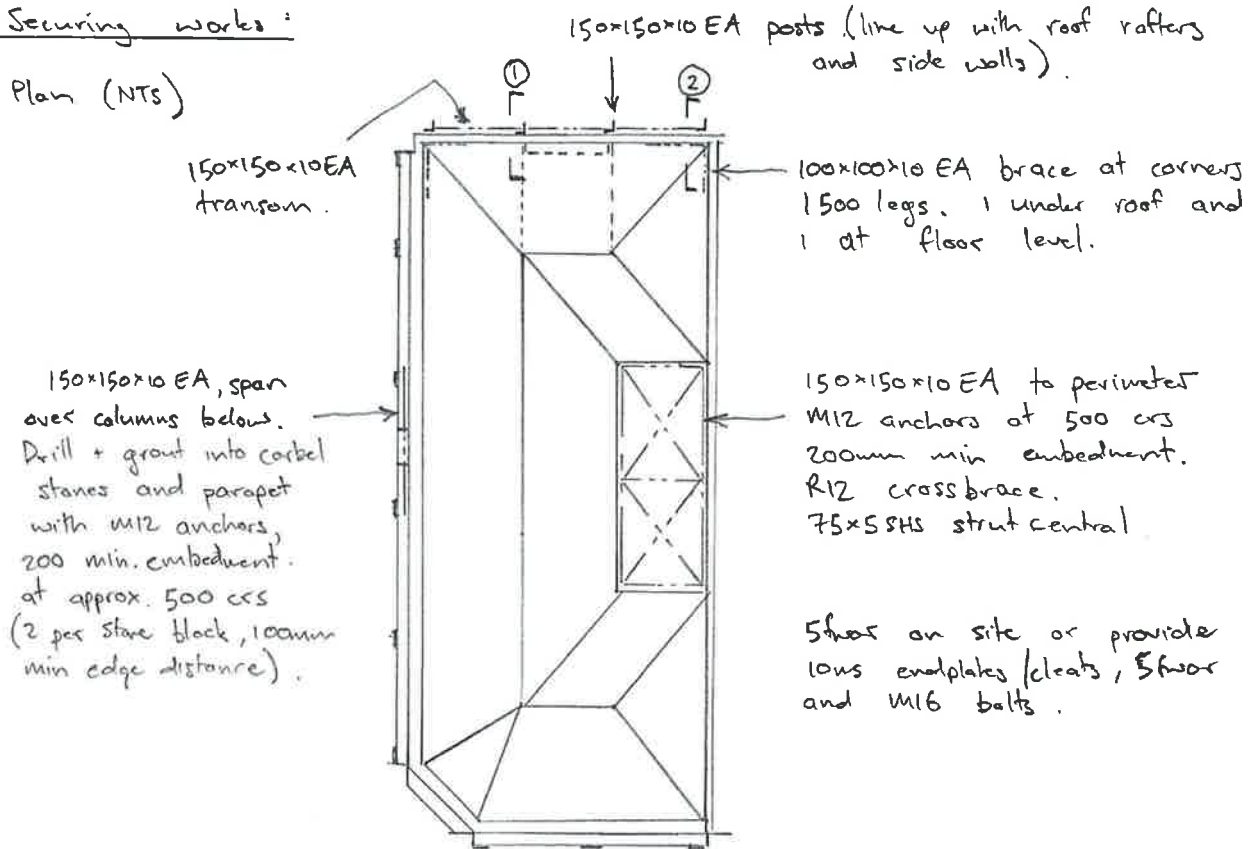 Securing works:
150×150×10 EA posts (line up with roof rafters
and side walls).
Plan (NTS)
1
2
150×150×10 EA
transom.
100×100×10 EA brace at corners
1500 legs. 1 under roof and
1 at floor level.
150×150×10 EA, span
over columns below.
Drill + grout into corbel
stones and parapet
with M12 anchors,
200 min. embedment.
at approx. 500 crs
(2 per stone block, 100mm
min edge distance).
150×150×10 EA to perimeter
M12 anchors at 500 crs
200mm min embedment.
R12 crossbrace.
75×5 SHS strut central
5fwar on site or provide
10ms endplates/cleats, 5fwar
and M16 bolts.